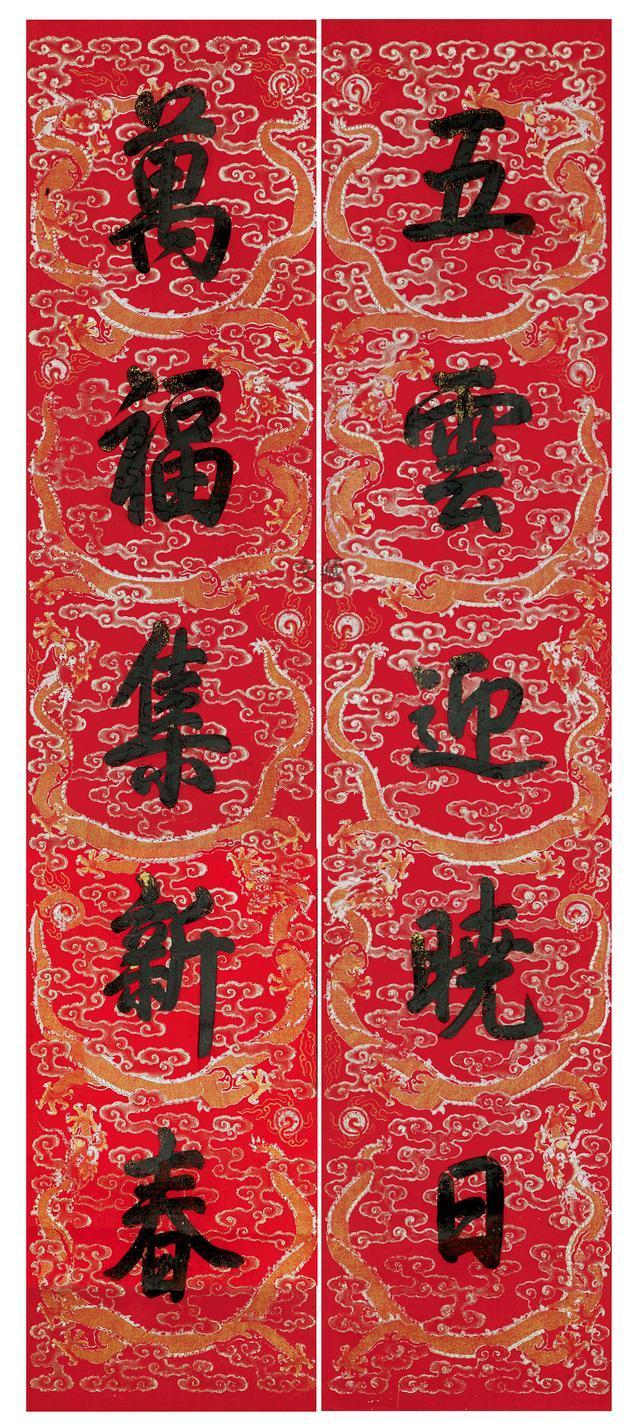 五雲迎曉日
萬福集新春